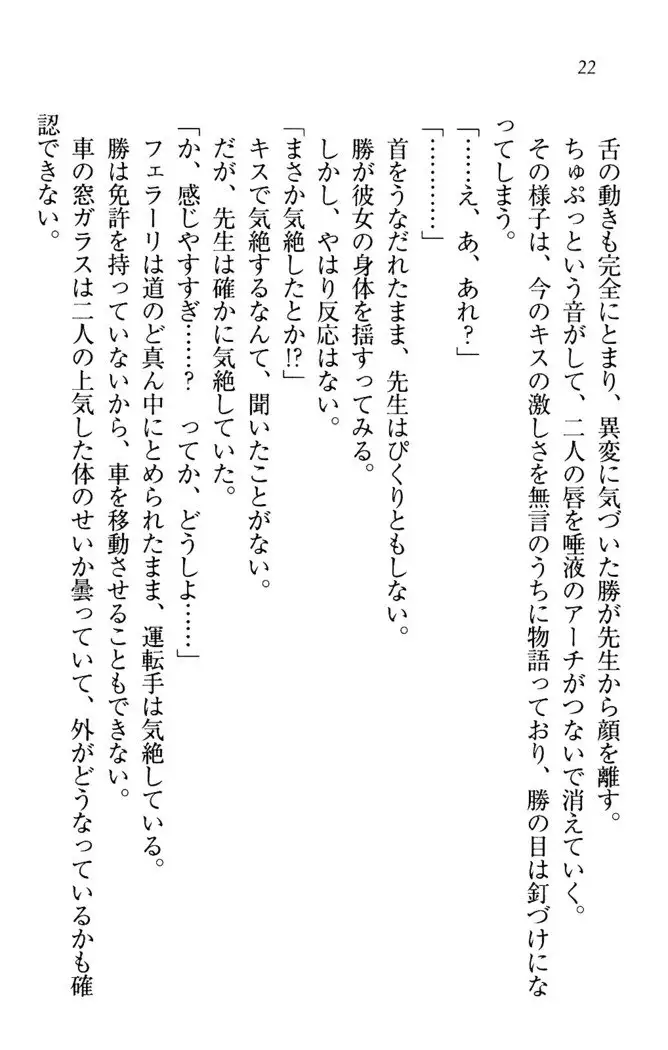 22
舌の動きも完全にとまり、異変に気づいた勝が先生から顔を離す。
ちゅぷっという音がして、二人の唇を唾液のアーチがつないで消えていく。
その様子は、今のキスの激しさを無言のうちに物語っており、勝の目は釘づけにな
ってしまう。
「……え、あ、あれ?」
「…………」
首をうなだれたまま、先生はぴくりともしない。
勝が彼女の身体を揺すってみる。
しかし、やはり反応はない。
「まさか気絶したとか!?」
キスで気絶するなんて、聞いたことがない。
だが、先生は確かに気絶していた。
「か、感じやすすぎ……? ってか、どうしよ……」
フェラーリは道のど真ん中にとめられたまま、運転手は気絶している。
勝は免許を持っていないから、車を移動させることもできない。
車の窓ガラスは二人の上気した体のせいか曇っていて、外がどうなっているかも確
認できない。